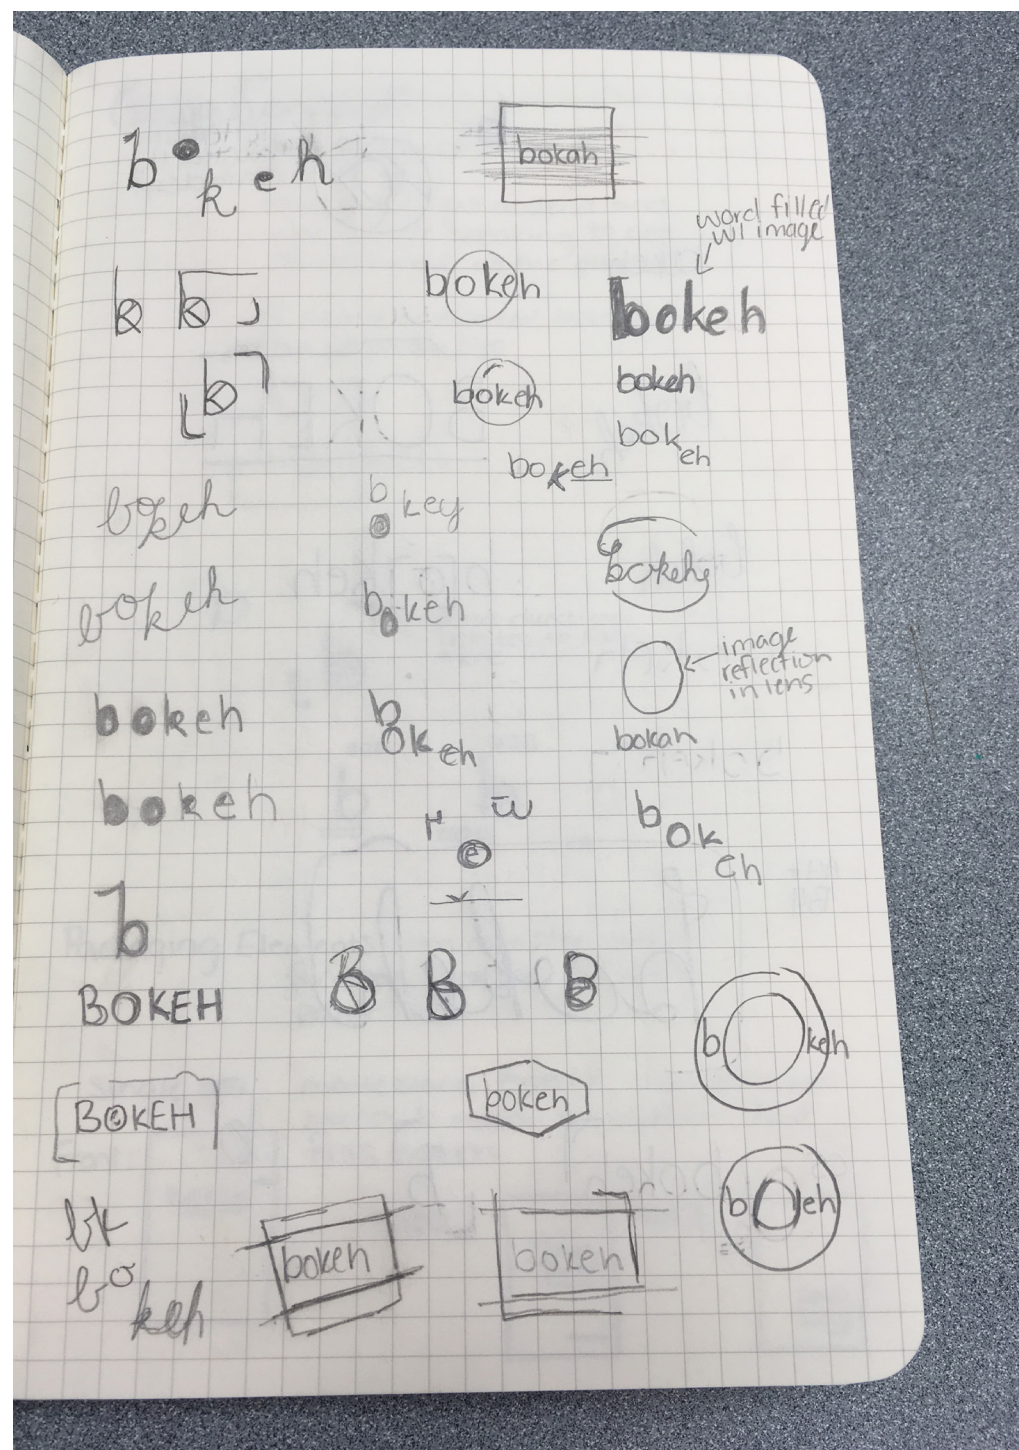 bokeh
bokah
word filled
w/ image
bokeh
bokeh
bokeh
bokeh
bok
eh
bokeh
bokeh
b
key
bokehs
bokeh
bokeh
image
reflection
in lens
bokeh
bokeh
bokah
bokeh
bok
eh
e
b
BOKEH
B
B
B
b keh
BOKEH
bokeh
bk
bokeh
bokeh
bokeh
bOeh